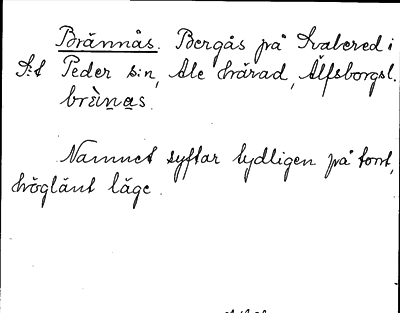 Brännås. Bergås på Kvabered i
S:t Peder s:n, Ale härad, Älfsborgsl.
brä̀nas.
Namnet syftar tydligen på torrt,
höglänt läge.